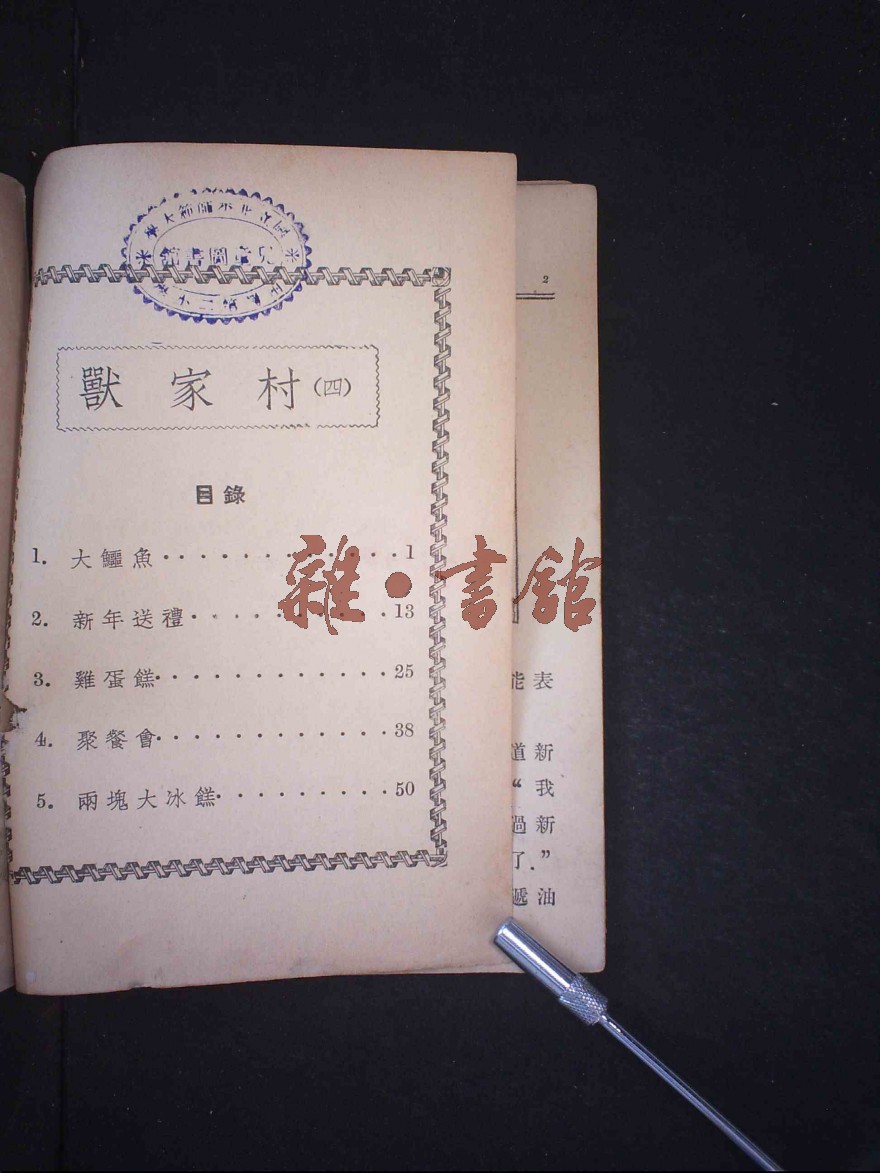 兒童圖書館
獸家村(四)
目錄
1. 大鱷魚············1
2. 新年送禮··········13
3. 雞蛋餻············25
4. 聚餐會············38
5. 兩塊大冰餻·········50
雜·書館
2
能表
道新
“我
過新
了.”
遞油